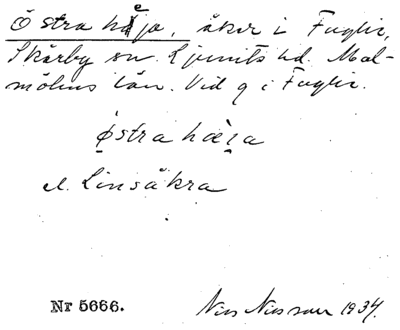 Östra häja, åker i Fuglie,
Skårby sn. Ljunits hd. Mal-
möhus län. Vid g i Fuglie.
østra hæ̀ra
el. Linsåkra
Nr 5666. Nils Nilsson 1934.